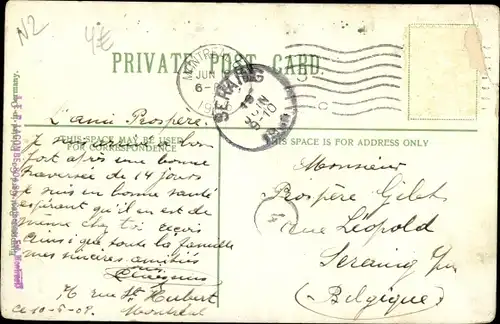 N2
4€
PRIVATE POST CARD.
MONTREAL
JUN
6-
SERAING
JUIN
9-10
THIS SPACE MAY BE USED
FOR CORRESPONDENCE
THIS SPACE IS FOR ADDRESS ONLY
L'ami Prospère.
Je suis à bon
port après une bonne
traversée de 14 jours
je suis en bonne santé
espérant qu'il en est de
même chez toi reçois
ainsi que toute la famille
mes sincères amitiés
ton ami
76 rue St Hubert
Montréal
Ce 10-6-09.
Monsieur
Prospère Gilet
rue Léopold
Seraing s/m
(Belgique)
4
Printed in Germany.